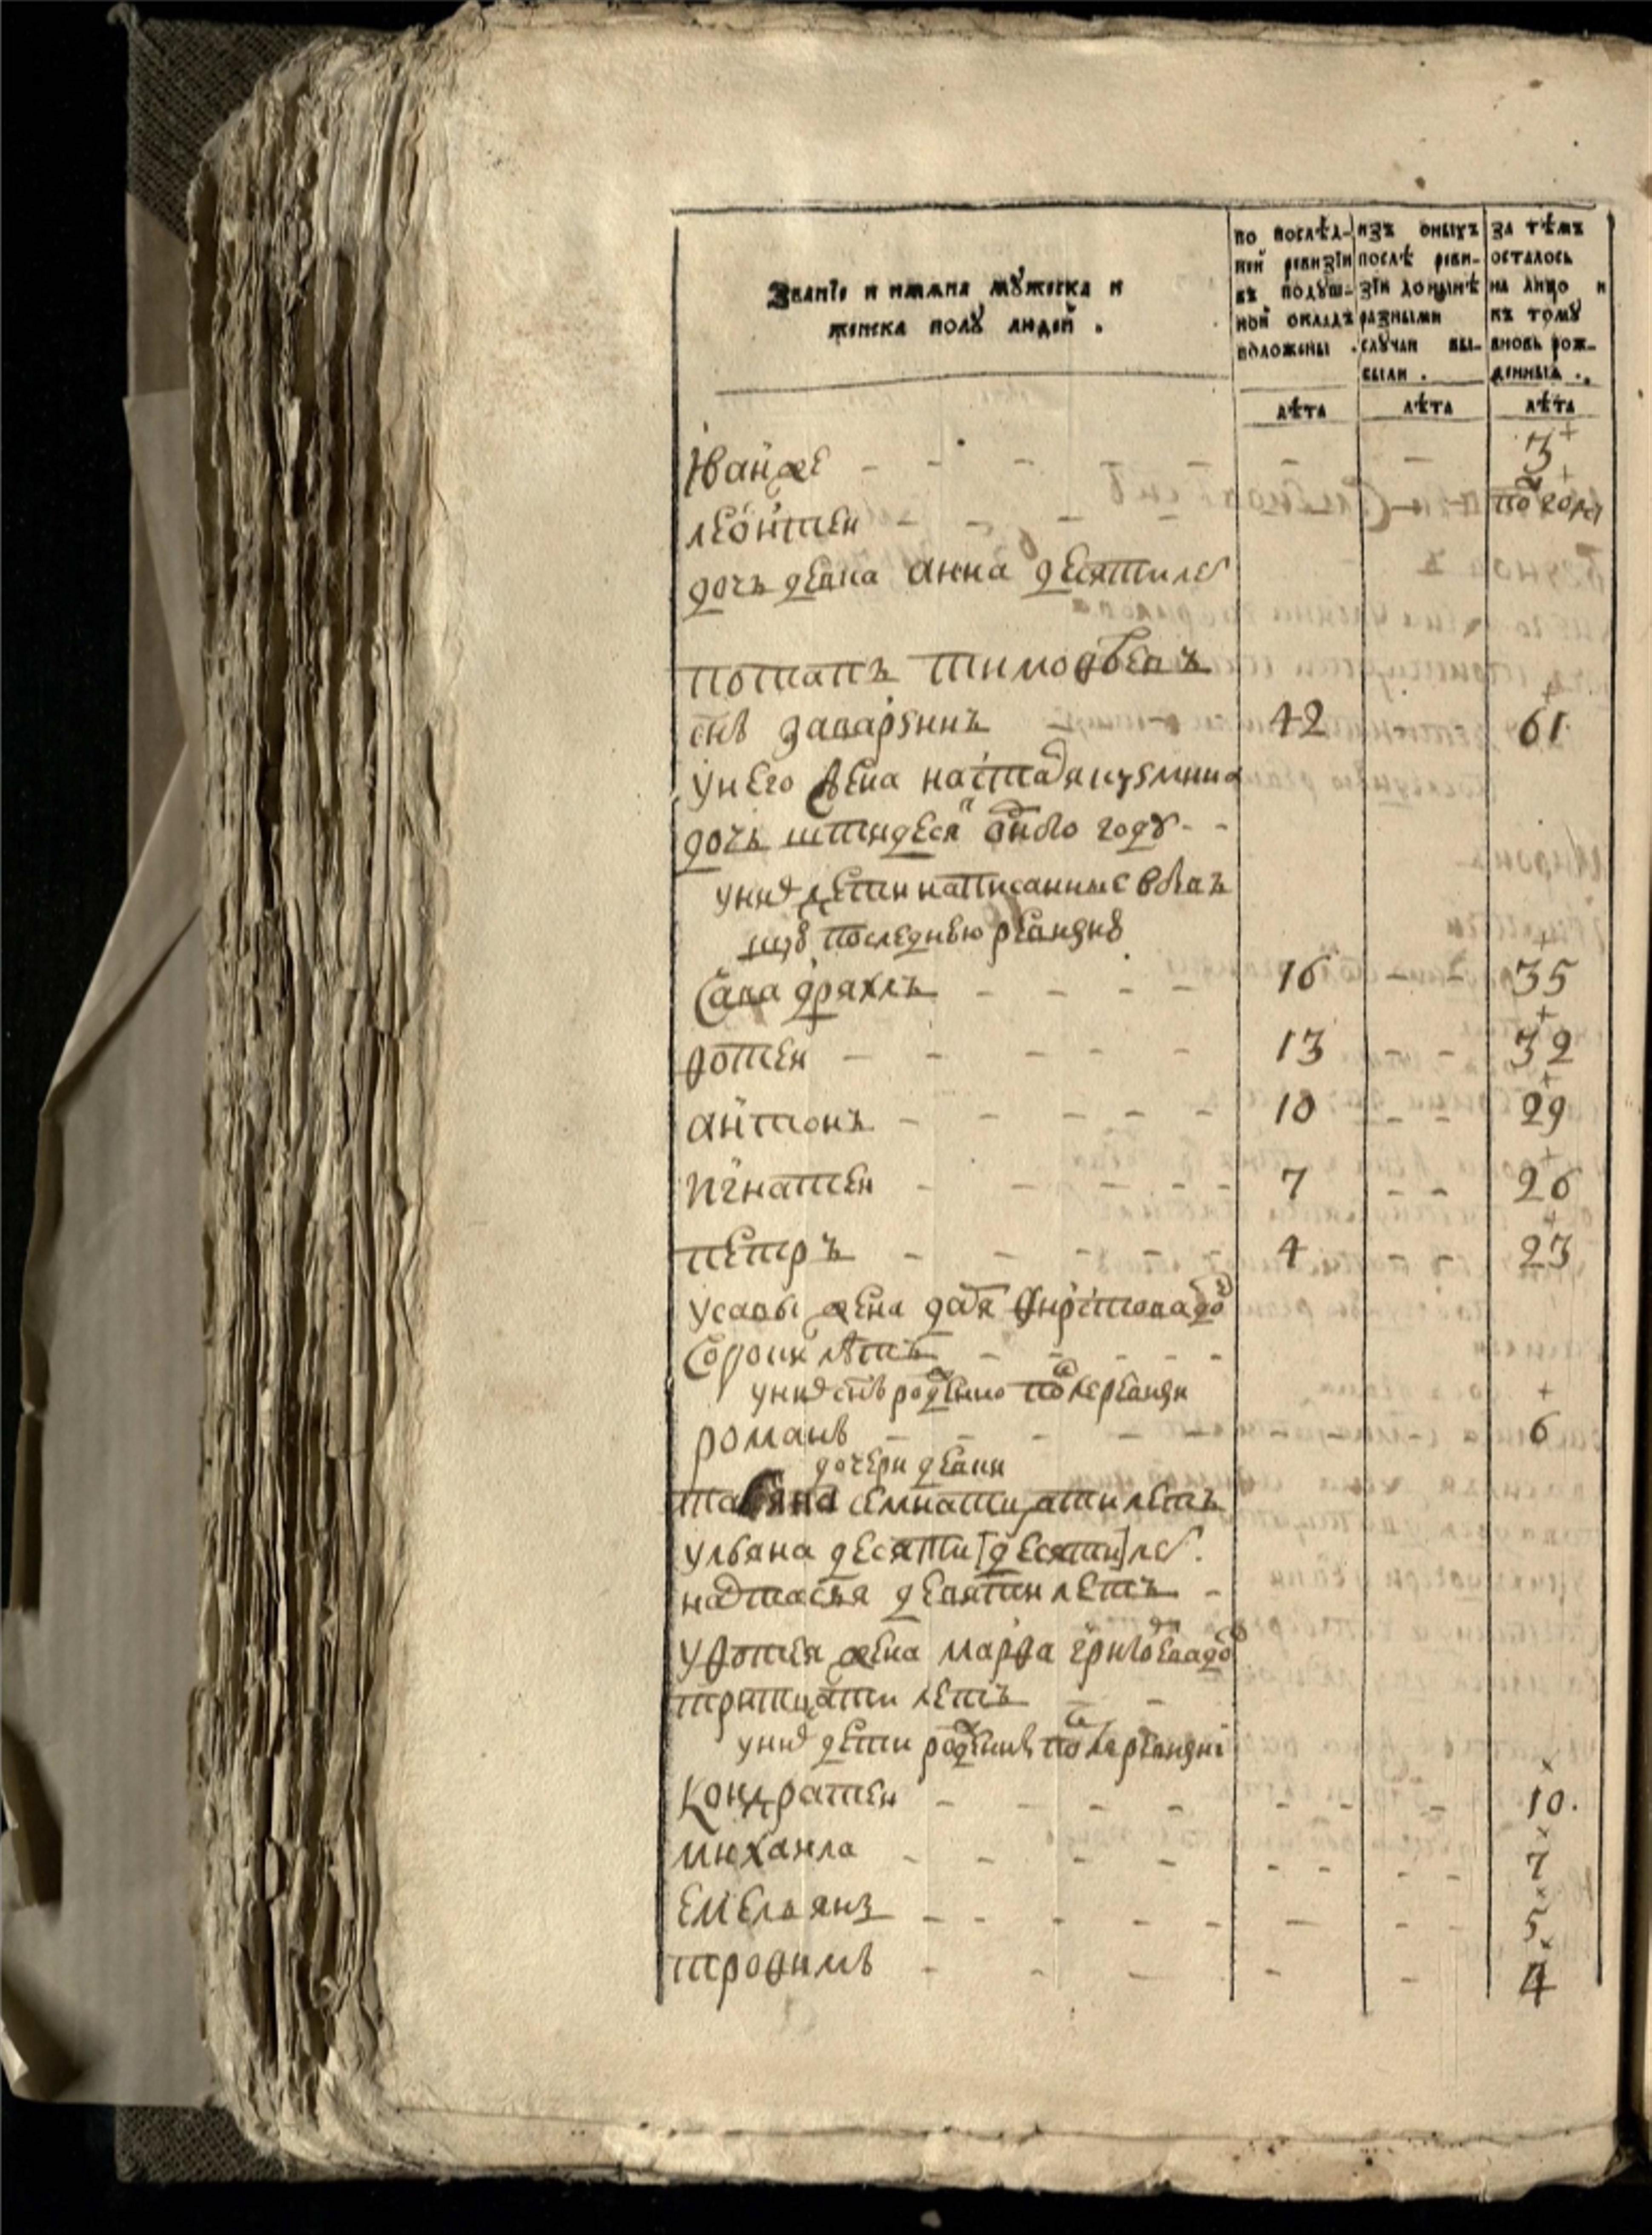 Званїе и имяна мꙋжеска и
женска полꙋ людей .
по послѣд-
ней ревизїи
въ подꙋш-
ной окладъ
положены .
изъ оныхъ
послѣ реви-
зїи донынѣ
разными
слꙋчаи вы-
были .
за тѣмъ
осталось
на лицо и
къ томꙋ
вновь рож-
денныя .
лѣта
лѣта
лѣта
Иван же - - - - - - 3
леонтеи - - - полгода
дочь девка анна десяти ле
потапъ тимофеевъ
снъ 42 61
у него жена настася кузмина
дочь штидеся одного годꙋ - -
у них дети написанные в бы
шꙋю последнюю ревизию
Сава дряхлъ - - - - 16 - - 35
фотеи - - - - - 13 - - 32
антонъ - - - - - 10 - - 29
игнатеи - - - - - 7 - - 26
петръ - - - - - 4 - - 23
у савы жена даря до
Сорокъ лѣтъ - - - - -
у них снъ рожденно после ревизи
романъ - - - - - - - - 6
дочери девки
татяна семнатцати летъ
ульяна десяти [десяти] ле .
настасья девяти летъ -
у фотея жена марфа до
тритцати летъ - -
у них дети рожденные после ревизиі
кондратеи - - - - - - - 10 .
михаила - - - - - - - - 7
емельянъ - - - - - - - - 5
трофимъ - - - - - 4